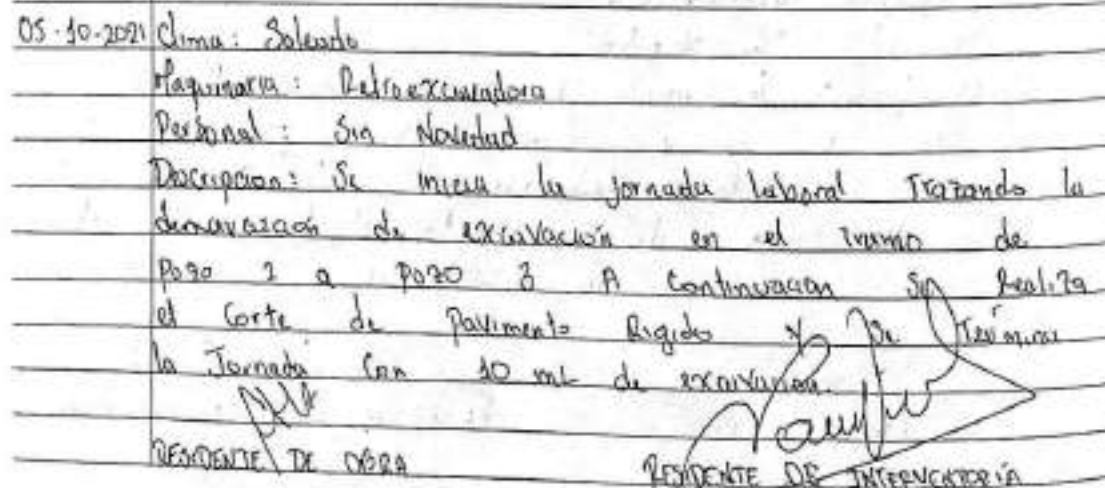 05-10-2021 Clima: Soleado
Maquinaria: Retroexcavadora
Personal: Sin Novedad
Descripcion: Se inicia la jornada laboral Trazando la
demarcazación de excavación en el tramo de
Pozo 2 a pozo 3 A Continuacion Se Realiza
el Corte de Pavimento Rigido y Se Termina
la Jornada Con 10 mL de excavacion.
RESIDENTE DE OBRA RESIDENTE DE INTERVENTORIA